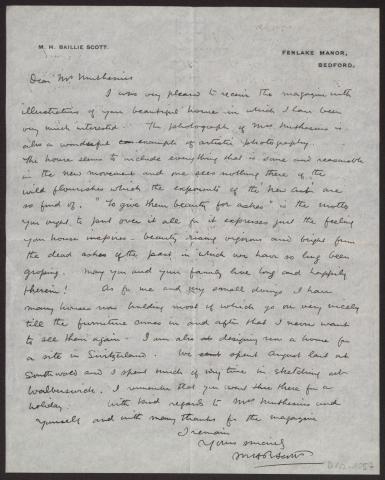 M. H. BAILLIE SCOTT.
FENLAKE MANOR,
BEDFORD.
Dear Mr Muthesius
I was very pleased to receive the magazine with
illustrations of your beautiful house in which I have been
very much interested. The photograph of Mrs Muthesius is
also a wonderful example of artistic photography.
The house seems to include everything that is sane and reasonable
in the new movement and one sees nothing there of the
wild flourishes which the exponents of the new art are
so fond of. "To give them beauty for ashes" is the motto
you ought to put over it all for it expresses just the feeling
your house inspires - beauty rising vigorous and bright from
the dead ashes of the past in which we have so long been
groping. May you and your family live long and happily
therein! As for me and my small doings I have
many houses now building most of which go on very nicely
till the furniture comes in and after that I never want
to see them again. I am also designing now a house for
a site in Switzerland. We spent August last at
Southwold and I spent much of my time in sketching at
Walberswick. I remember that you went there for a
holiday. With kind regards to Mrs Muthesius and
yourself and with many thanks for the magazine
I remain
Yours sincerely
M H B Scott